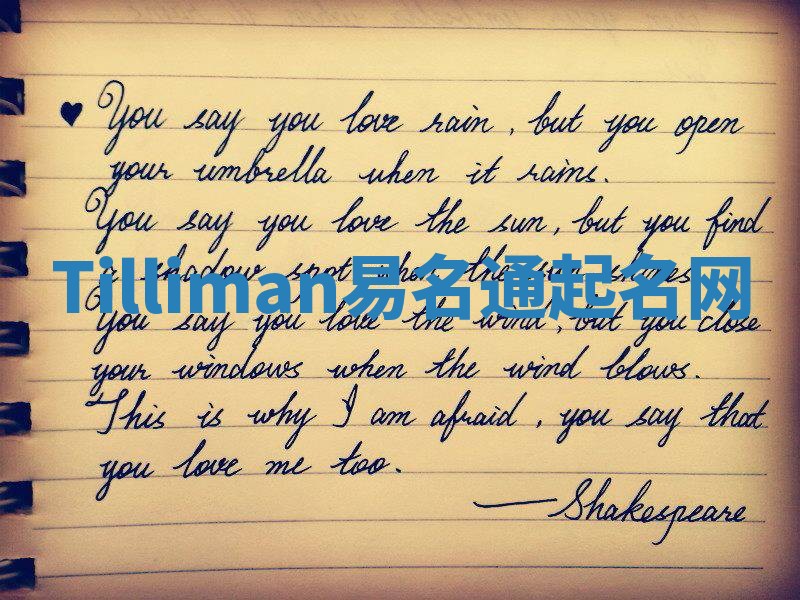 ♥ You say you love rain, but you open
your umbrella when it rains.
You say you love the sun, but you find
a shadow spot when the sun shines
Tilliman易名通起名网
You say you love the wind, but you close
your windows when the wind blows.
This is why I am afraid, you say that
you love me too.
—Shakespeare